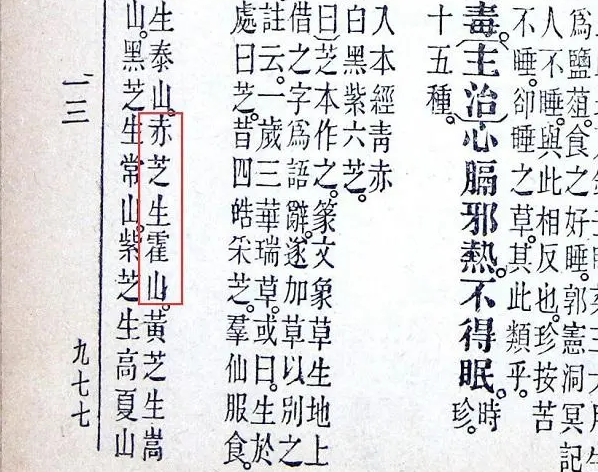 為鹽葅食之好睡。郭憲洞冥記
人不睡。與此相反也。珍按苦
不睡。卻睡之草。其此類乎。
毒。〔主治〕心膈邪熱。不得眠。時珍。
十五種。
入本經青赤
白黑紫六芝。
曰〕芝本作之。篆文象草生地上
借之字為語辭。遂加草以別之
註云。一歲三華瑞草。或曰。生於
處曰芝。昔四皓采芝。羣仙服食。
生泰山。赤芝生霍山。黃芝生嵩
山。黑芝生常山。紫芝生高夏山
一三
九七七